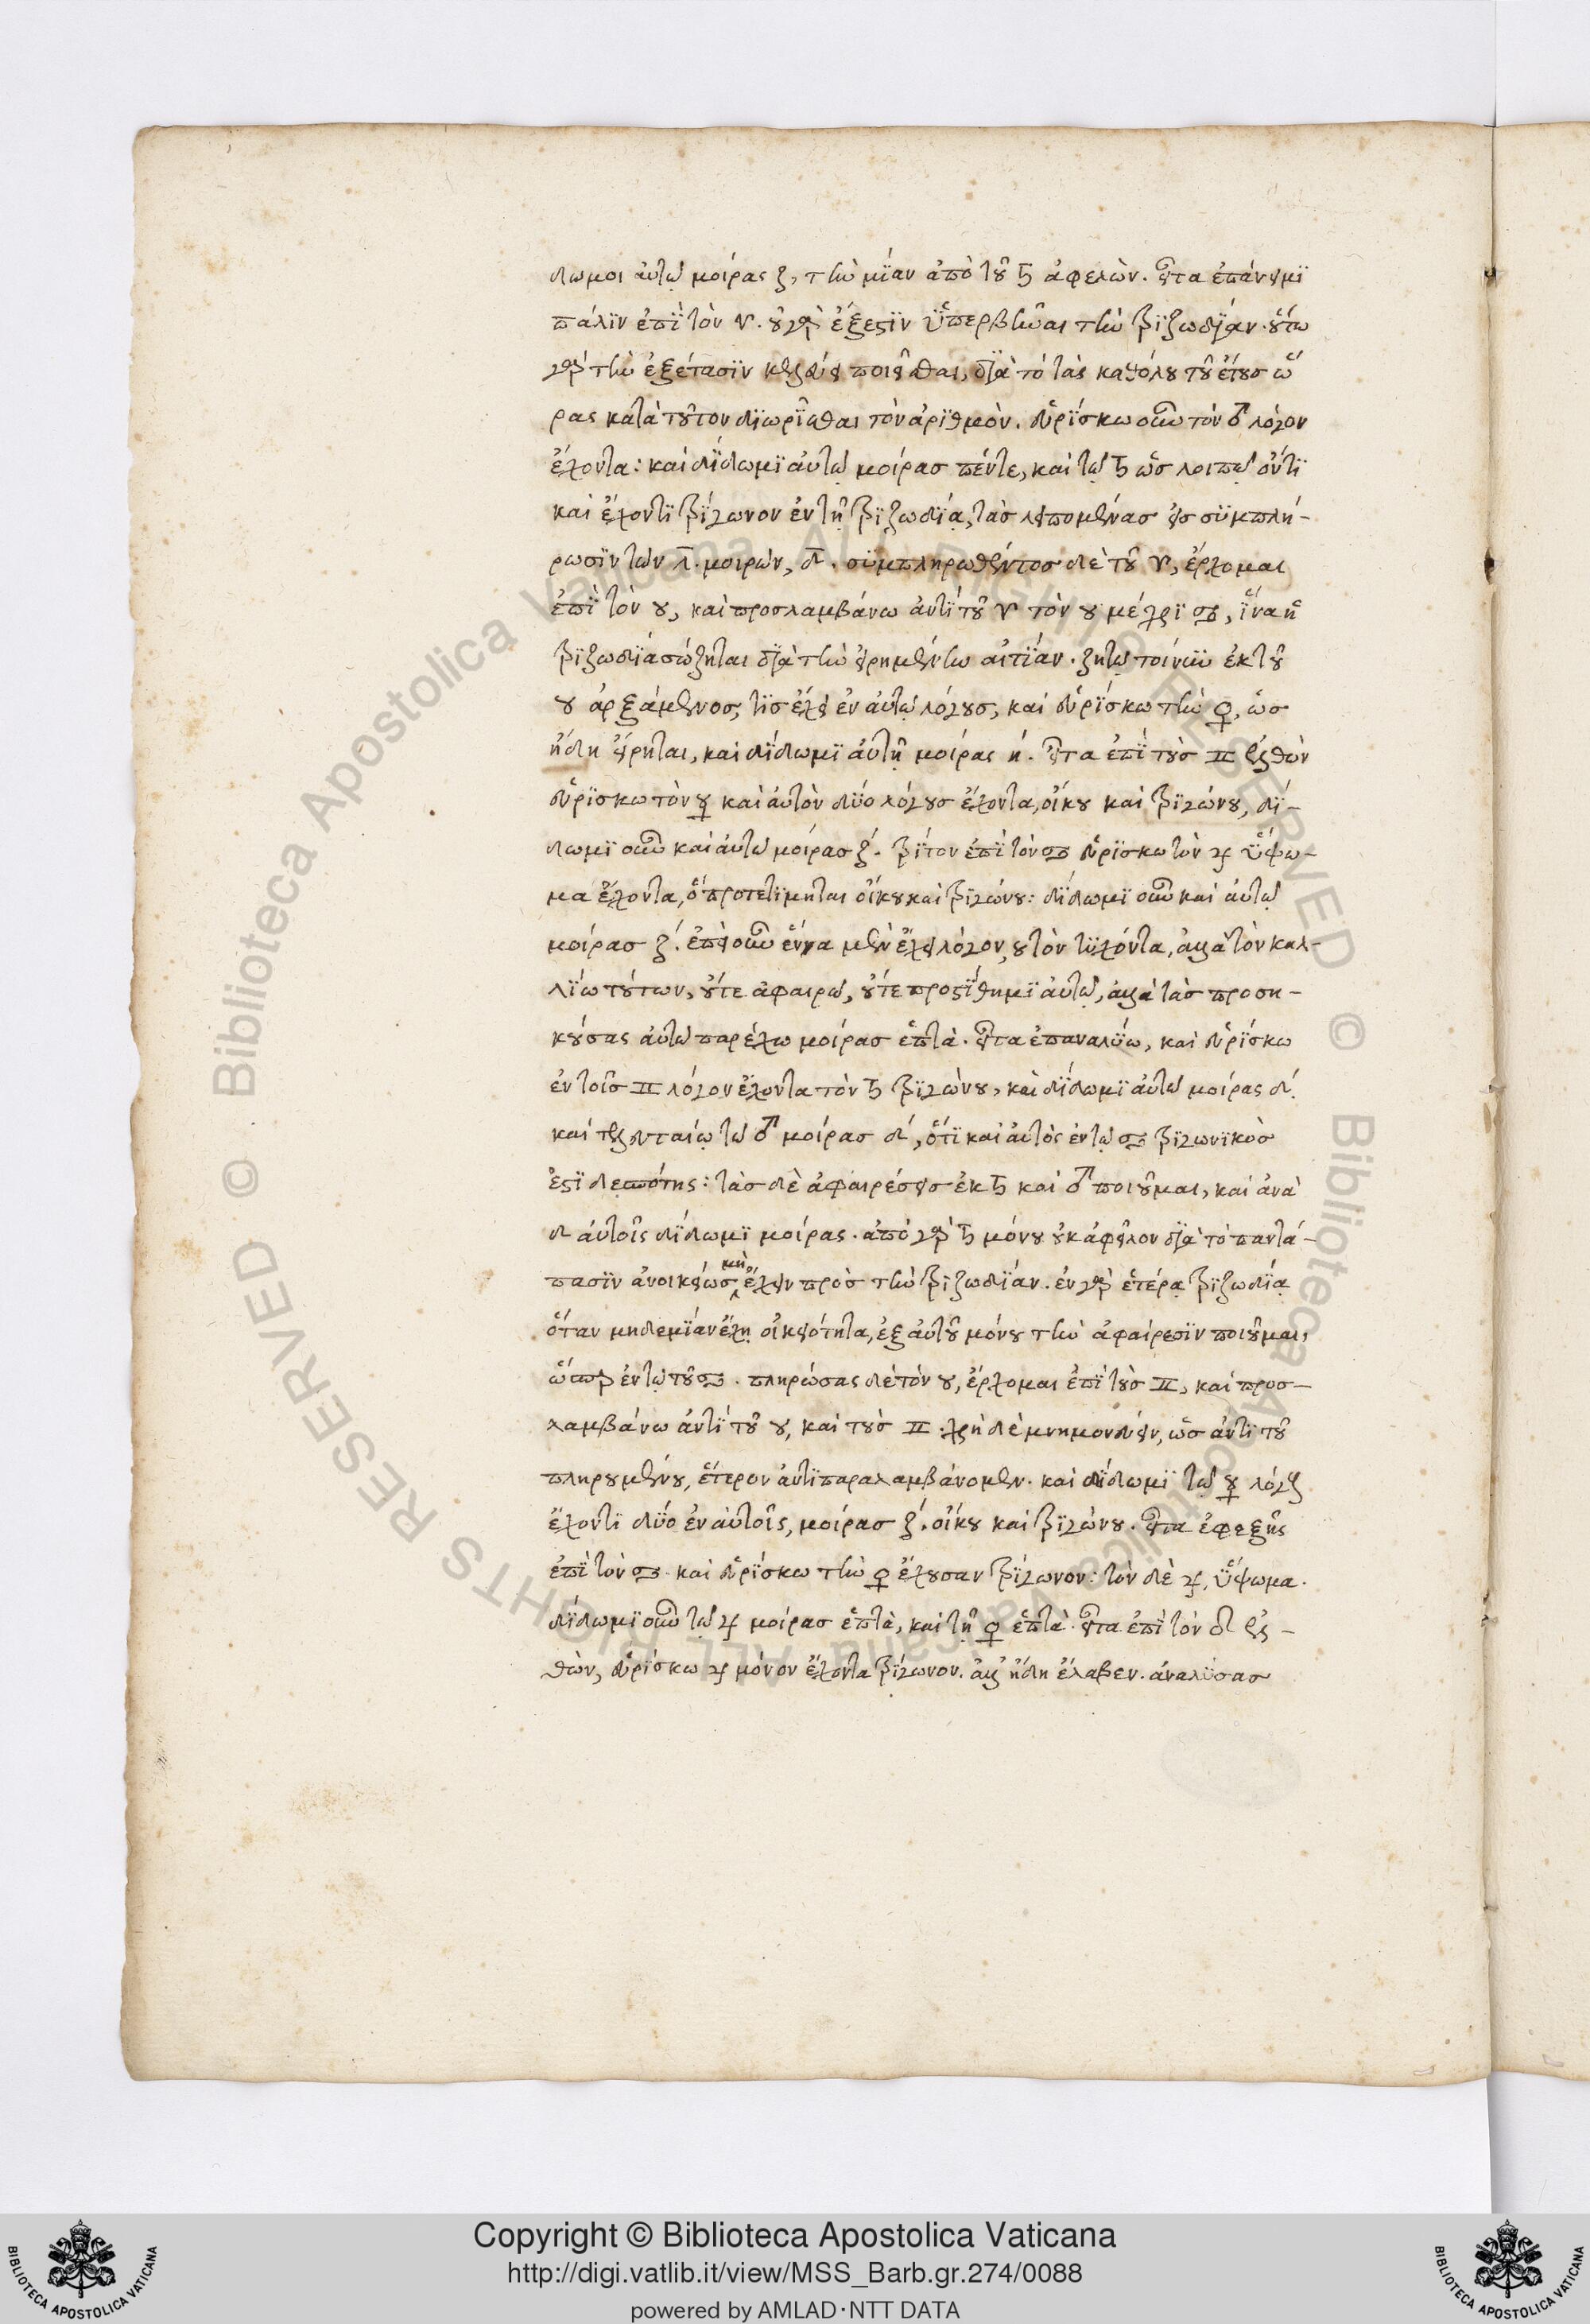 δωμοι αὐτῷ μοίρας ζ, τὴν μίαν ἀπὸ τοῦ ♄ ἀφελών. εἶτα ἐπάνειμι
πάλιν ἐπὶ τὸν ♈. οὐ γὰρ ἔξεστιν ὑπερβῆναι τὴν τριζωδίαν. οὕτω
γὰρ τὴν ἐξέτασιν κελεύει ποιεῖσθαι, διὰ τὸ τὰς καθόλου τοῦ ἔτους ὥ
ρας κατὰ τοῦτον διωρίσθαι τὸν ἀριθμὸν. εὑρίσκω οὖν τὸν ♂ λόγον
ἔχοντα: καὶ δίδωμι αὐτῷ μοίρας πέντε, καὶ τῷ ♄ ὡς λοιπῷ ὄντι
καὶ ἔχοντι τρίγωνον ἐν τῇ τριζωδίᾳ, τὰς λειπομένας εἰς συμπλή-
ρωσιν τῶν λ. μοιρῶν, δ. συμπληρωθέντος δὲ τοῦ ♈, ἔρχομαι
ἐπὶ τὸν ♉, καὶ προσλαμβάνω ἀντὶ τοῦ ♈ τὸν ♉ μέχρι ♋, ἵνα ἡ
τριζωδία σώζηται διὰ τὴν εἰρημένην αἰτίαν. ζητῶ τοίνυν ἐκ τοῦ
♉ ἀρξάμενος, τίς ἔχει ἐν αὐτῷ λόγους, καὶ εὑρίσκω τὴν ♀, ὡς
ἤδη εἴρηται, καὶ δίδωμι αὐτῇ μοίρας ή. εἶτα ἐπὶ τοὺς ♊ ἐλθὼν
εὑρίσκω τὸν ☿ καὶ αὐτὸν δύο λόγους ἔχοντα, οἴκου καὶ τριγώνου, δί-
δωμι οὖν καὶ αὐτῷ μοίρας ζ. τρίτον ἐπὶ τὸν ♋ εὑρίσκω τὸν ♃ ὕψω-
μα ἔχοντα, ὃ προτετίμηται οἴκου καὶ τριγώνου: δίδωμι οὖν καὶ αὐτῷ
μοίρας ζ. ἐπεὶ οὖν ἕνα μὲν ἔχει λόγον, οὐ τὸν τυχόντα, ἀλλὰ τὸν καλ-
λίω τούτων, οὔτε ἀφαιρῶ, οὔτε προστίθημι αὐτῷ, ἀλλὰ τὰς προση-
κούσας αὐτῷ παρέχω μοίρας ἑπτὰ. εἶτα ἐπαναλύω, καὶ εὑρίσκω
ἐν τοῖς ♊ λόγον ἔχοντα τὸν ♄ τριγώνου, καὶ δίδωμι αὐτῷ μοίρας δ.
καὶ τελευταίῳ τῷ ♂ μοίρας δ, ὅτι καὶ αὐτὸς ἐν τῷ ♋ τριγωνικὸς
ἐστι δεσπότης: τὰς δὲ ἀφαιρέσεις ἐκ ♄ καὶ ♂ ποιοῦμαι, καὶ ἀνὰ
δ αὐτοῖς δίδωμι μοίρας. ἀπὸ γὰρ ♄ μόνου οὐκ ἀφεῖλον διὰ τὸ παντά-
πασιν ἀνοικείως μὴ ἔχειν πρὸς τὴν τριζωδίαν. ἐν γὰρ ἑτέρᾳ τριζωδίᾳ
ὅταν μηδεμίαν ἔχῃ οἰκειότητα, ἐξ αὐτοῦ μόνου τὴν ἀφαίρεσιν ποιοῦμαι,
ὥσπερ ἐν τῷ τοῦ ♋. πληρώσας δὲ τὸν ♉, ἔρχομαι ἐπὶ τοὺς ♊, καὶ προσ-
λαμβάνω ἀντὶ τοῦ ♉, καὶ τοὺς ♊. χρὴ δὲ μνημονεύειν, ὡς ἀντὶ τοῦ
πληρουμένου, ἕτερον ἀντιπαραλαμβάνομεν. καὶ δίδωμι τῷ ☿ λόγους
ἔχοντι δύο ἐν αὐτοῖς, μοίρας ζ. οἴκου καὶ τριγώνου. εἶτα ἐφεξῆς
ἐπὶ τὸν ♋. καὶ εὑρίσκω τὴν ♀ ἔχουσαν τρίγωνον: τὸν δὲ ♃, ὕψωμα.
δίδωμι οὖν τῷ ♃ μοίρας ἑπτὰ, καὶ τῇ ♀ ἑπτὰ. εἶτα ἐπὶ τὸν ♌ ἐλ-
θὼν, εὑρίσκω ♃ μόνον ἔχοντα τρίγωνον. ἀλλ' ἤδη ἔλαβεν. ἀναλύσας
Copyright © Biblioteca Apostolica Vaticana
http://digi.vatlib.it/view/MSS_Barb.gr.274/0088
powered by AMLAD·NTT DATA